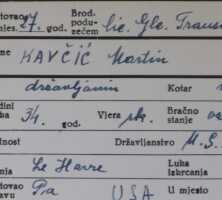 tovao 27. god. Brod. podu- zećem lic. Gle. Transa
mies.
me KAVČIĆ Martin
državljanin Kotar
dini ba 34. god. Vjera rk. Bračno stanje
nost Državljanstvo
sina Le Havre Luka iskrcanja
tovao avu Pra USA U mjesto